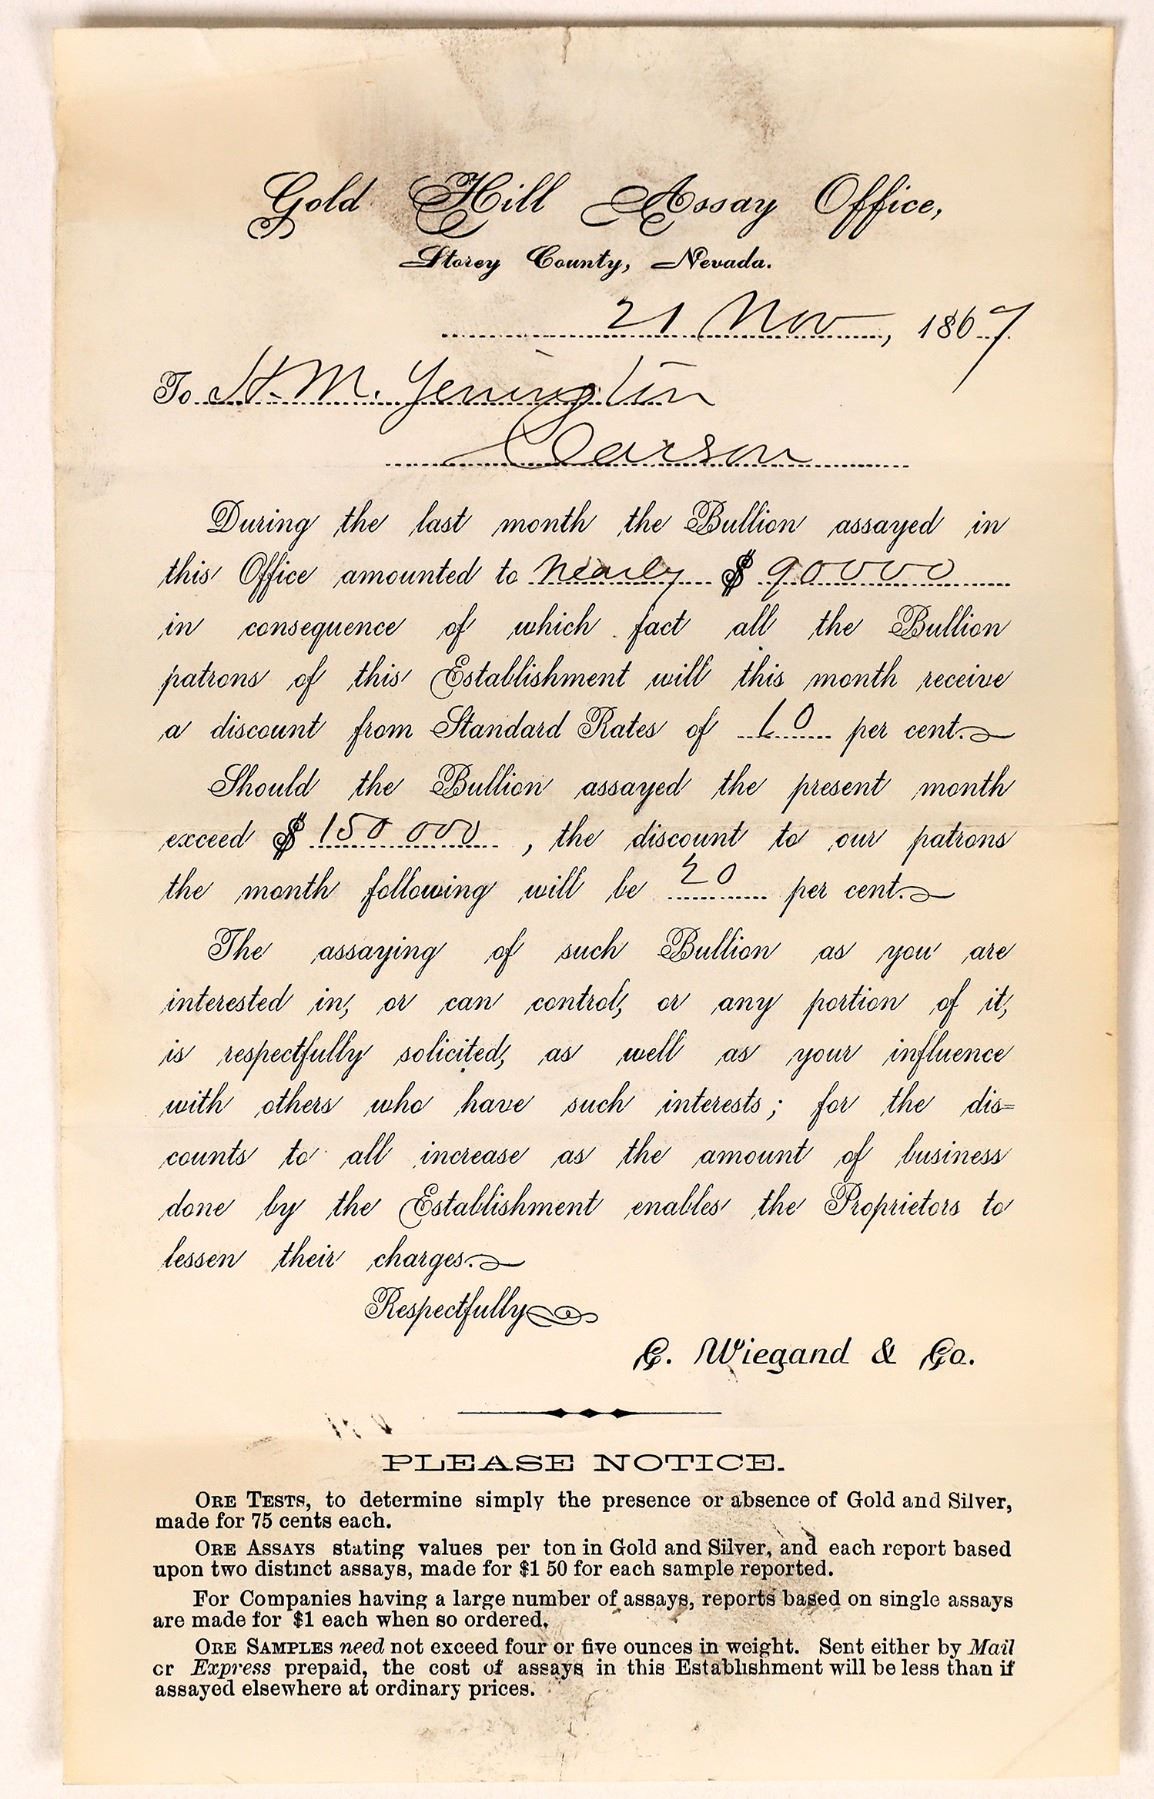 Gold Hill Assay Office,
Storey County, Nevada.
21 Nov, 1867
To H. M. Yerington
Carson
During the last month the Bullion assayed in
this Office amounted to nearly $ 90000
in consequence of which fact all the Bullion
patrons of this Establishment will this month receive
a discount from Standard Rates of 10 per cent.
Should the Bullion assayed the present month
exceed $ 150 000, the discount to our patrons
the month following will be 20 per cent.
The assaying of such Bullion as you are
interested in, or can control, or any portion of it,
is respectfully solicited, as well as your influence
with others who have such interests; for the dis=
counts to all increase as the amount of business
done by the Establishment enables the Proprietors to
lessen their charges.
Respectfully
C. Wiegand & Co.
PLEASE NOTICE.
ORE TESTS, to determine simply the presence or absence of Gold and Silver,
made for 75 cents each.
ORE ASSAYS stating values per ton in Gold and Silver, and each report based
upon two distinct assays, made for $1 50 for each sample reported.
For Companies having a large number of assays, reports based on single assays
are made for $1 each when so ordered.
ORE SAMPLES need not exceed four or five ounces in weight. Sent either by Mail
or Express prepaid, the cost of assays in this Establishment will be less than if
assayed elsewhere at ordinary prices.